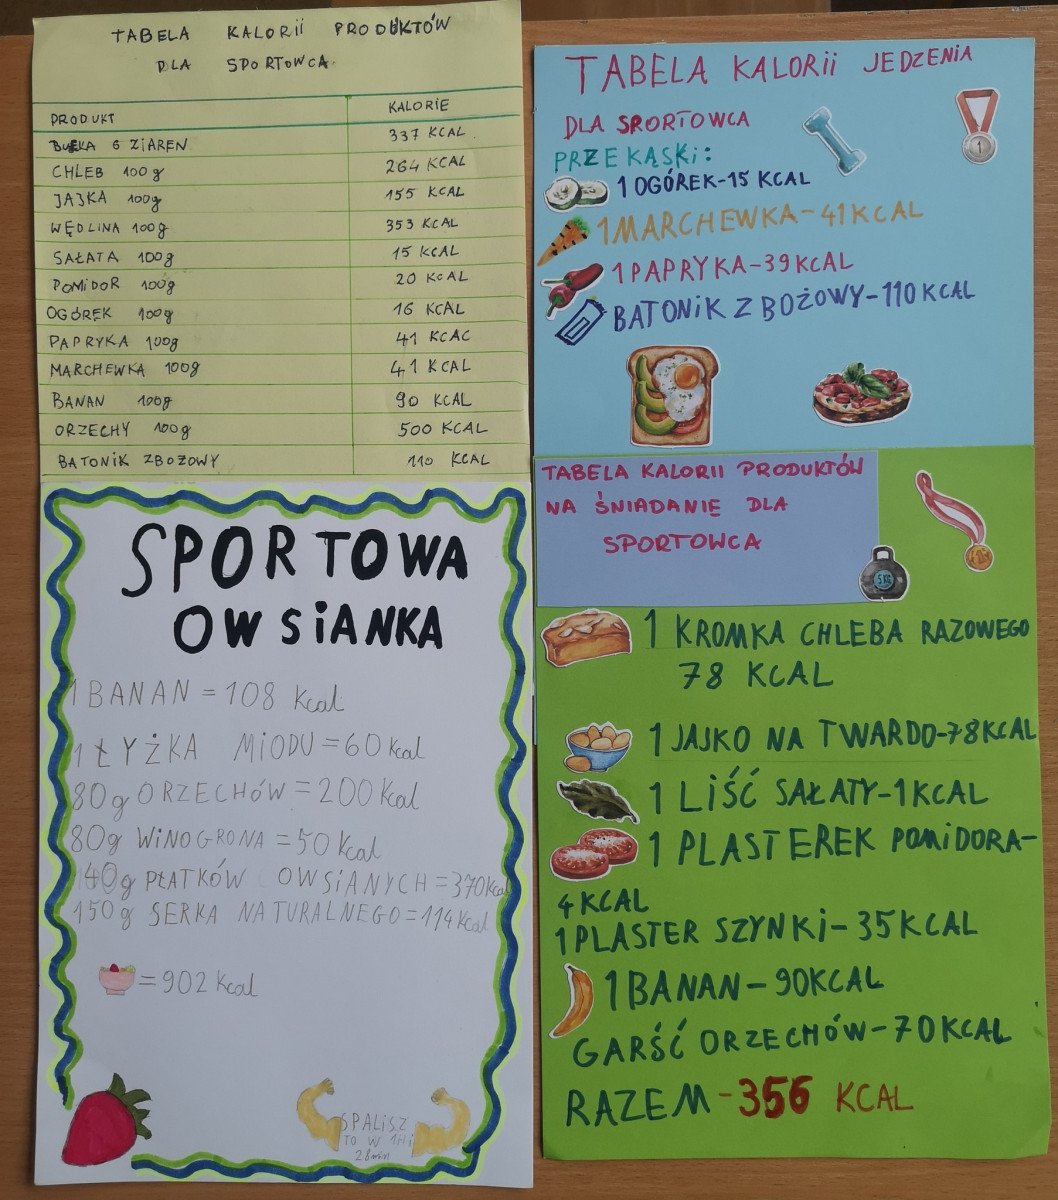 TABELA KALORII PRODUKTÓW
DLA SPORTOWCA
PRODUKT KALORIE
BUŁKA 6 ZIAREN 337 KCAL
CHLEB 100g 264 KCAL
JAJKA 100g 155 KCAL
WĘDLINA 100g 353 KCAL
SAŁATA 100g 15 KCAL
POMIDOR 100g 20 KCAL
OGÓREK 100g 16 KCAL
PAPRYKA 100g 41 KCAC
MARCHEWKA 100g 41 KCAL
BANAN 100g 90 KCAL
ORZECHY 100g 500 KCAL
BATONIK ZBOŻOWY 110 KCAL
SPORTOWA
OWSIANKA
1 BANAN = 108 Kcal
1 ŁYŻKA MIODU = 60 Kcal
80g ORZECHÓW = 200 Kcal
80g WINOGRONA = 50 Kcal
140g PŁATKÓW OWSIANYCH = 370 Kcal
150g SERKA NATURALNEGO = 114 Kcal
= 902 Kcal
SPALISZ
TO W 1H i
28min
TABELA KALORII JEDZENIA
DLA SPORTOWCA
PRZEKĄSKI:
1 OGÓREK-15 KCAL
1 MARCHEWKA-41 KCAL
1 PAPRYKA-39 KCAL
BATONIK ZBOŻOWY-110 KCAL
1
TABELA KALORII PRODUKTÓW
NA ŚNIADANIE DLA
SPORTOWCA
5 KG
1 KROMKA CHLEBA RAZOWEGO
78 KCAL
1 JAJKO NA TWARDO-78KCAL
1 LIŚĆ SAŁATY-1KCAL
1 PLASTEREK POMIDORA-
4 KCAL
1 PLASTER SZYNKI-35KCAL
1 BANAN-90KCAL
GARŚĆ ORZECHÓW-70KCAL
RAZEM-356 KCAL